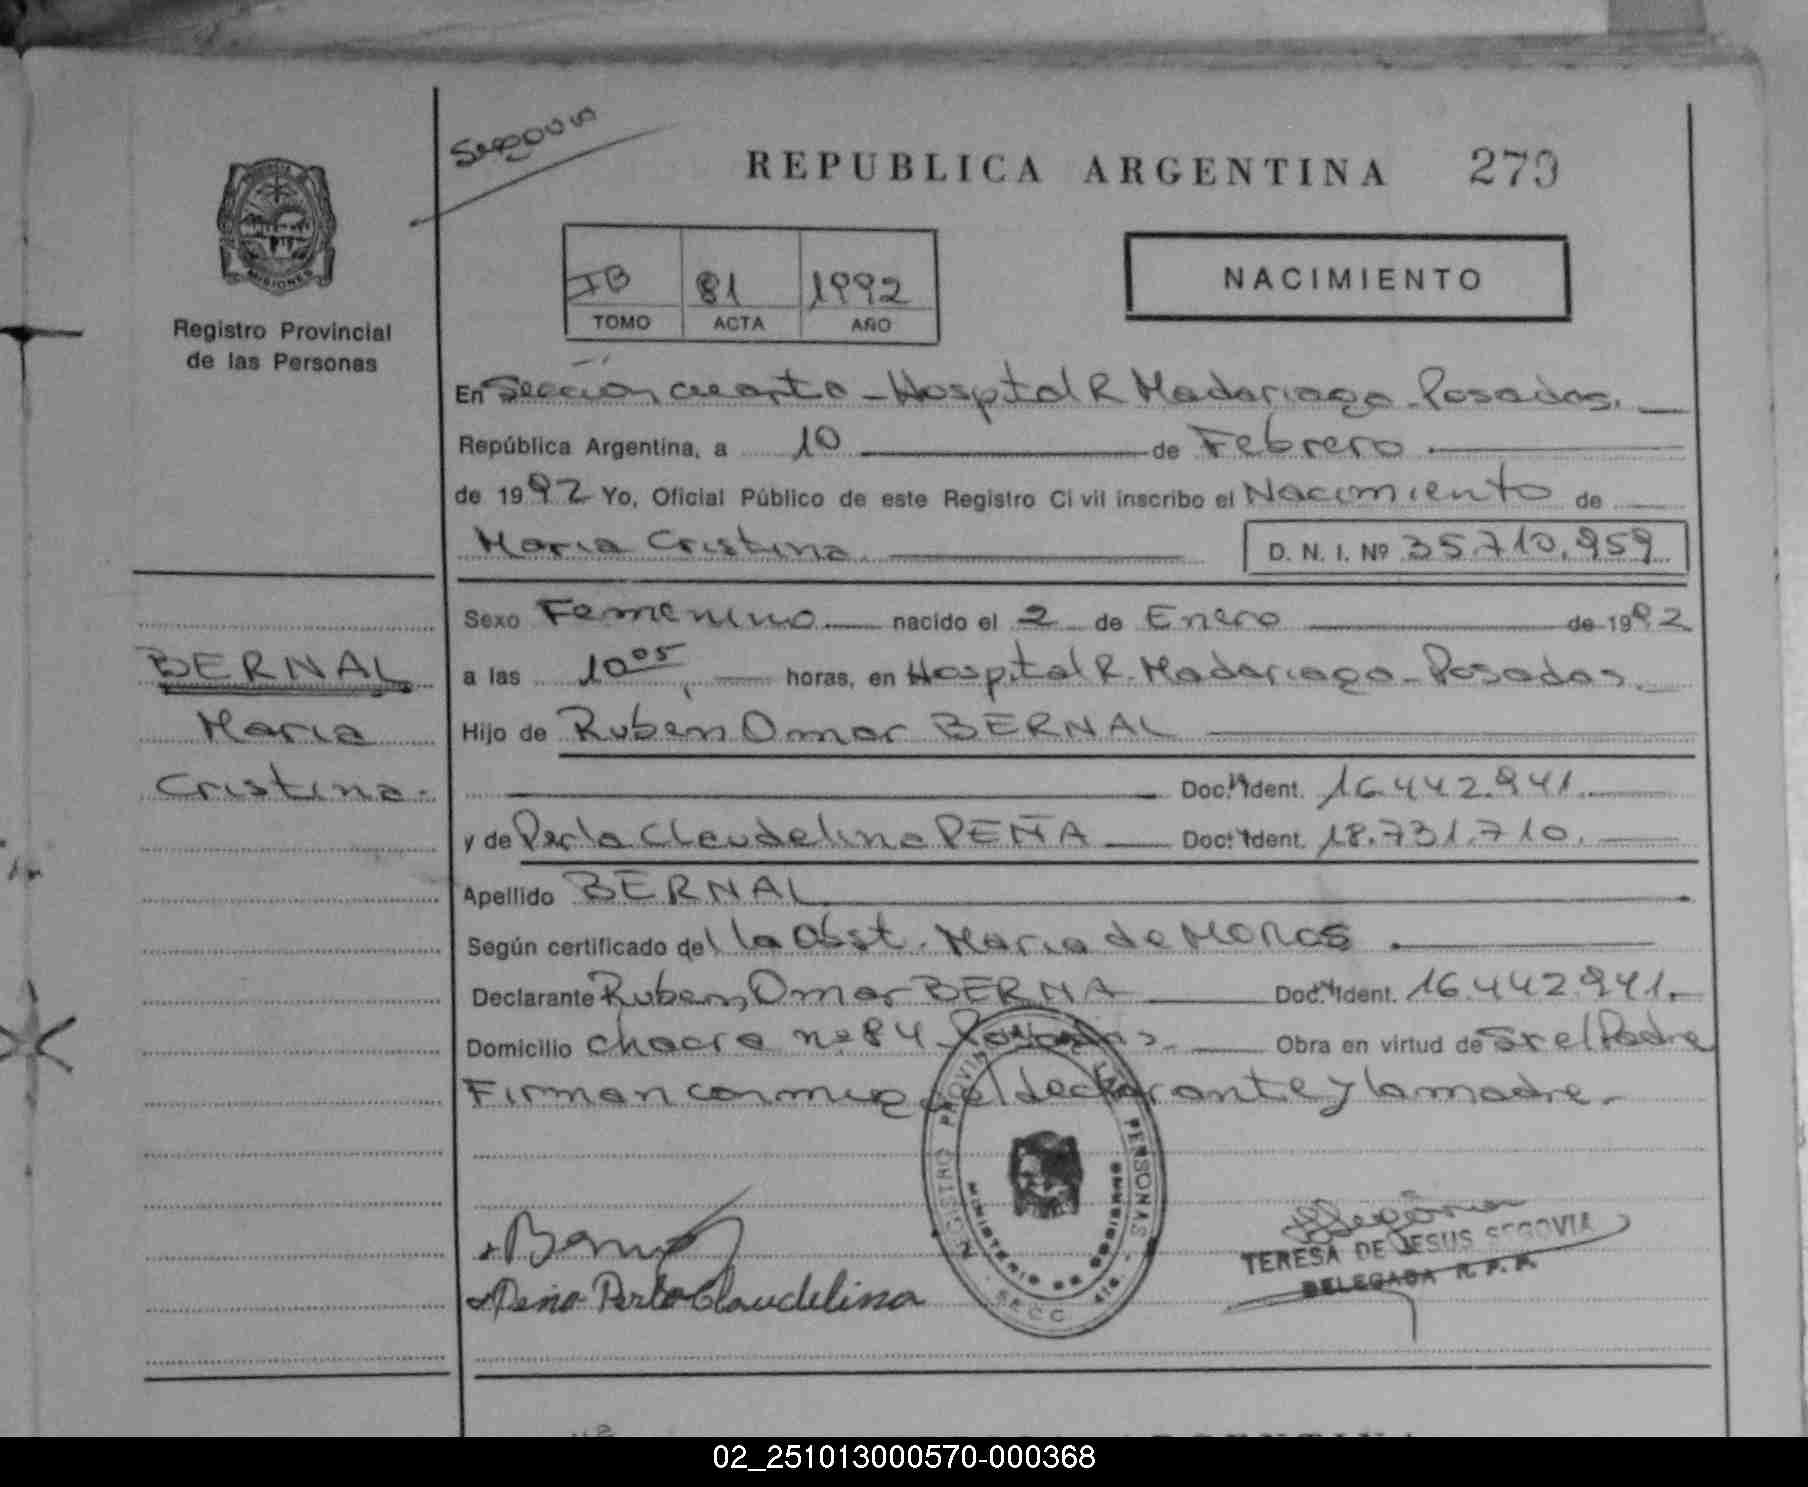 Segovia
REPUBLICA ARGENTINA 279
MISIONES
Registro Provincial
de las Personas
IB 81 1992
TOMO ACTA AÑO
NACIMIENTO
En Sección cuarta - Hospital R. Madariaga - Posadas.
República Argentina, a 10 de Febrero
de 1992 Yo, Oficial Público de este Registro Civil inscribo el Nacimiento de
Maria Cristina D. N. I. Nº 35.710.959
Sexo Femenino nacido el 2 de Enero de 1992
a las 10 05 horas, en Hospital R. Madariaga - Posadas.
Hijo de Rubén Omar BERNAL
Doc. Ident. 16.442.941.
y de Perla Claudelina PEÑA Doc. Ident. 18.731.710.
Apellido BERNAL
Según certificado de la Obst. Maria de
Declarante Ruben Omar BERNA Doc. Ident. 16.442.941.
Domicilio Chacra nº 84 Posadas. Obra en virtud de Sr el Padre
Firman conmigo el declarante y la madre.
BERNAL
Maria
Cristina.
REGISTRO PROVINCIAL PERSONAS
MINISTERIO DE GOBIERNO
SECC. 4ta.
Peña Perla Claudelina
TERESA DE JESUS SEGOVIA
DELEGADA R. P. P.
02_251013000570-000368